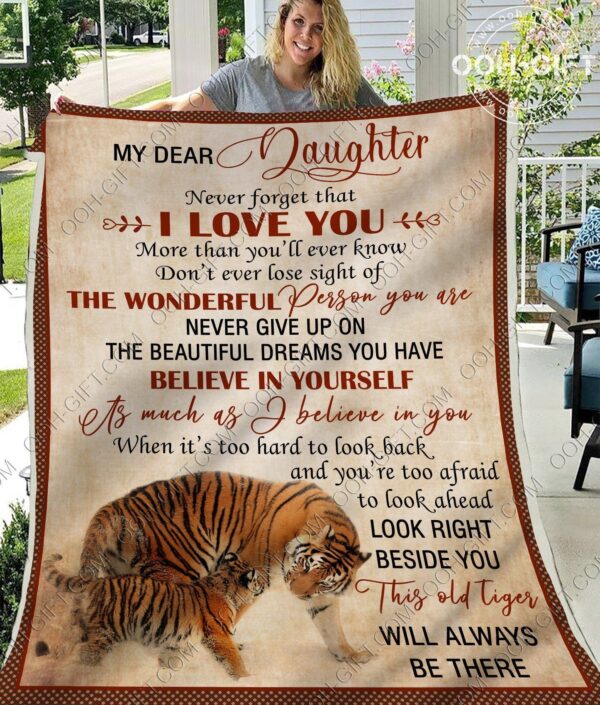 OOH-GIFT
MY DEAR Daughter
Never forget that
I LOVE YOU
More than you'll ever know
Don't ever lose sight of
THE WONDERFUL Person you are
NEVER GIVE UP ON
THE BEAUTIFUL DREAMS YOU HAVE
BELIEVE IN YOURSELF
As much as I believe in you
When it's too hard to look back
and you're too afraid
to look ahead
LOOK RIGHT
BESIDE YOU
This old tiger
WILL ALWAYS
BE THERE
OOH-GIFT.COM